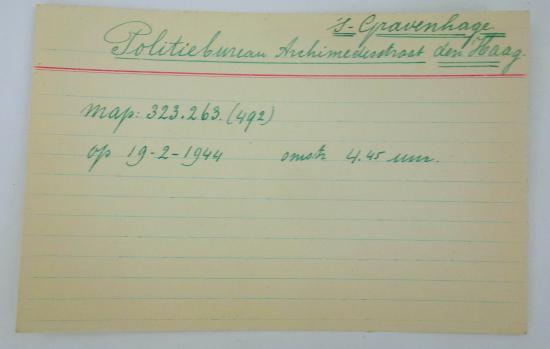 's-Gravenhage
Politiebureau Archimedesstraat den Haag.
map: 323.263. (492)
op 19-2-1944 omstr 4.45 uur.